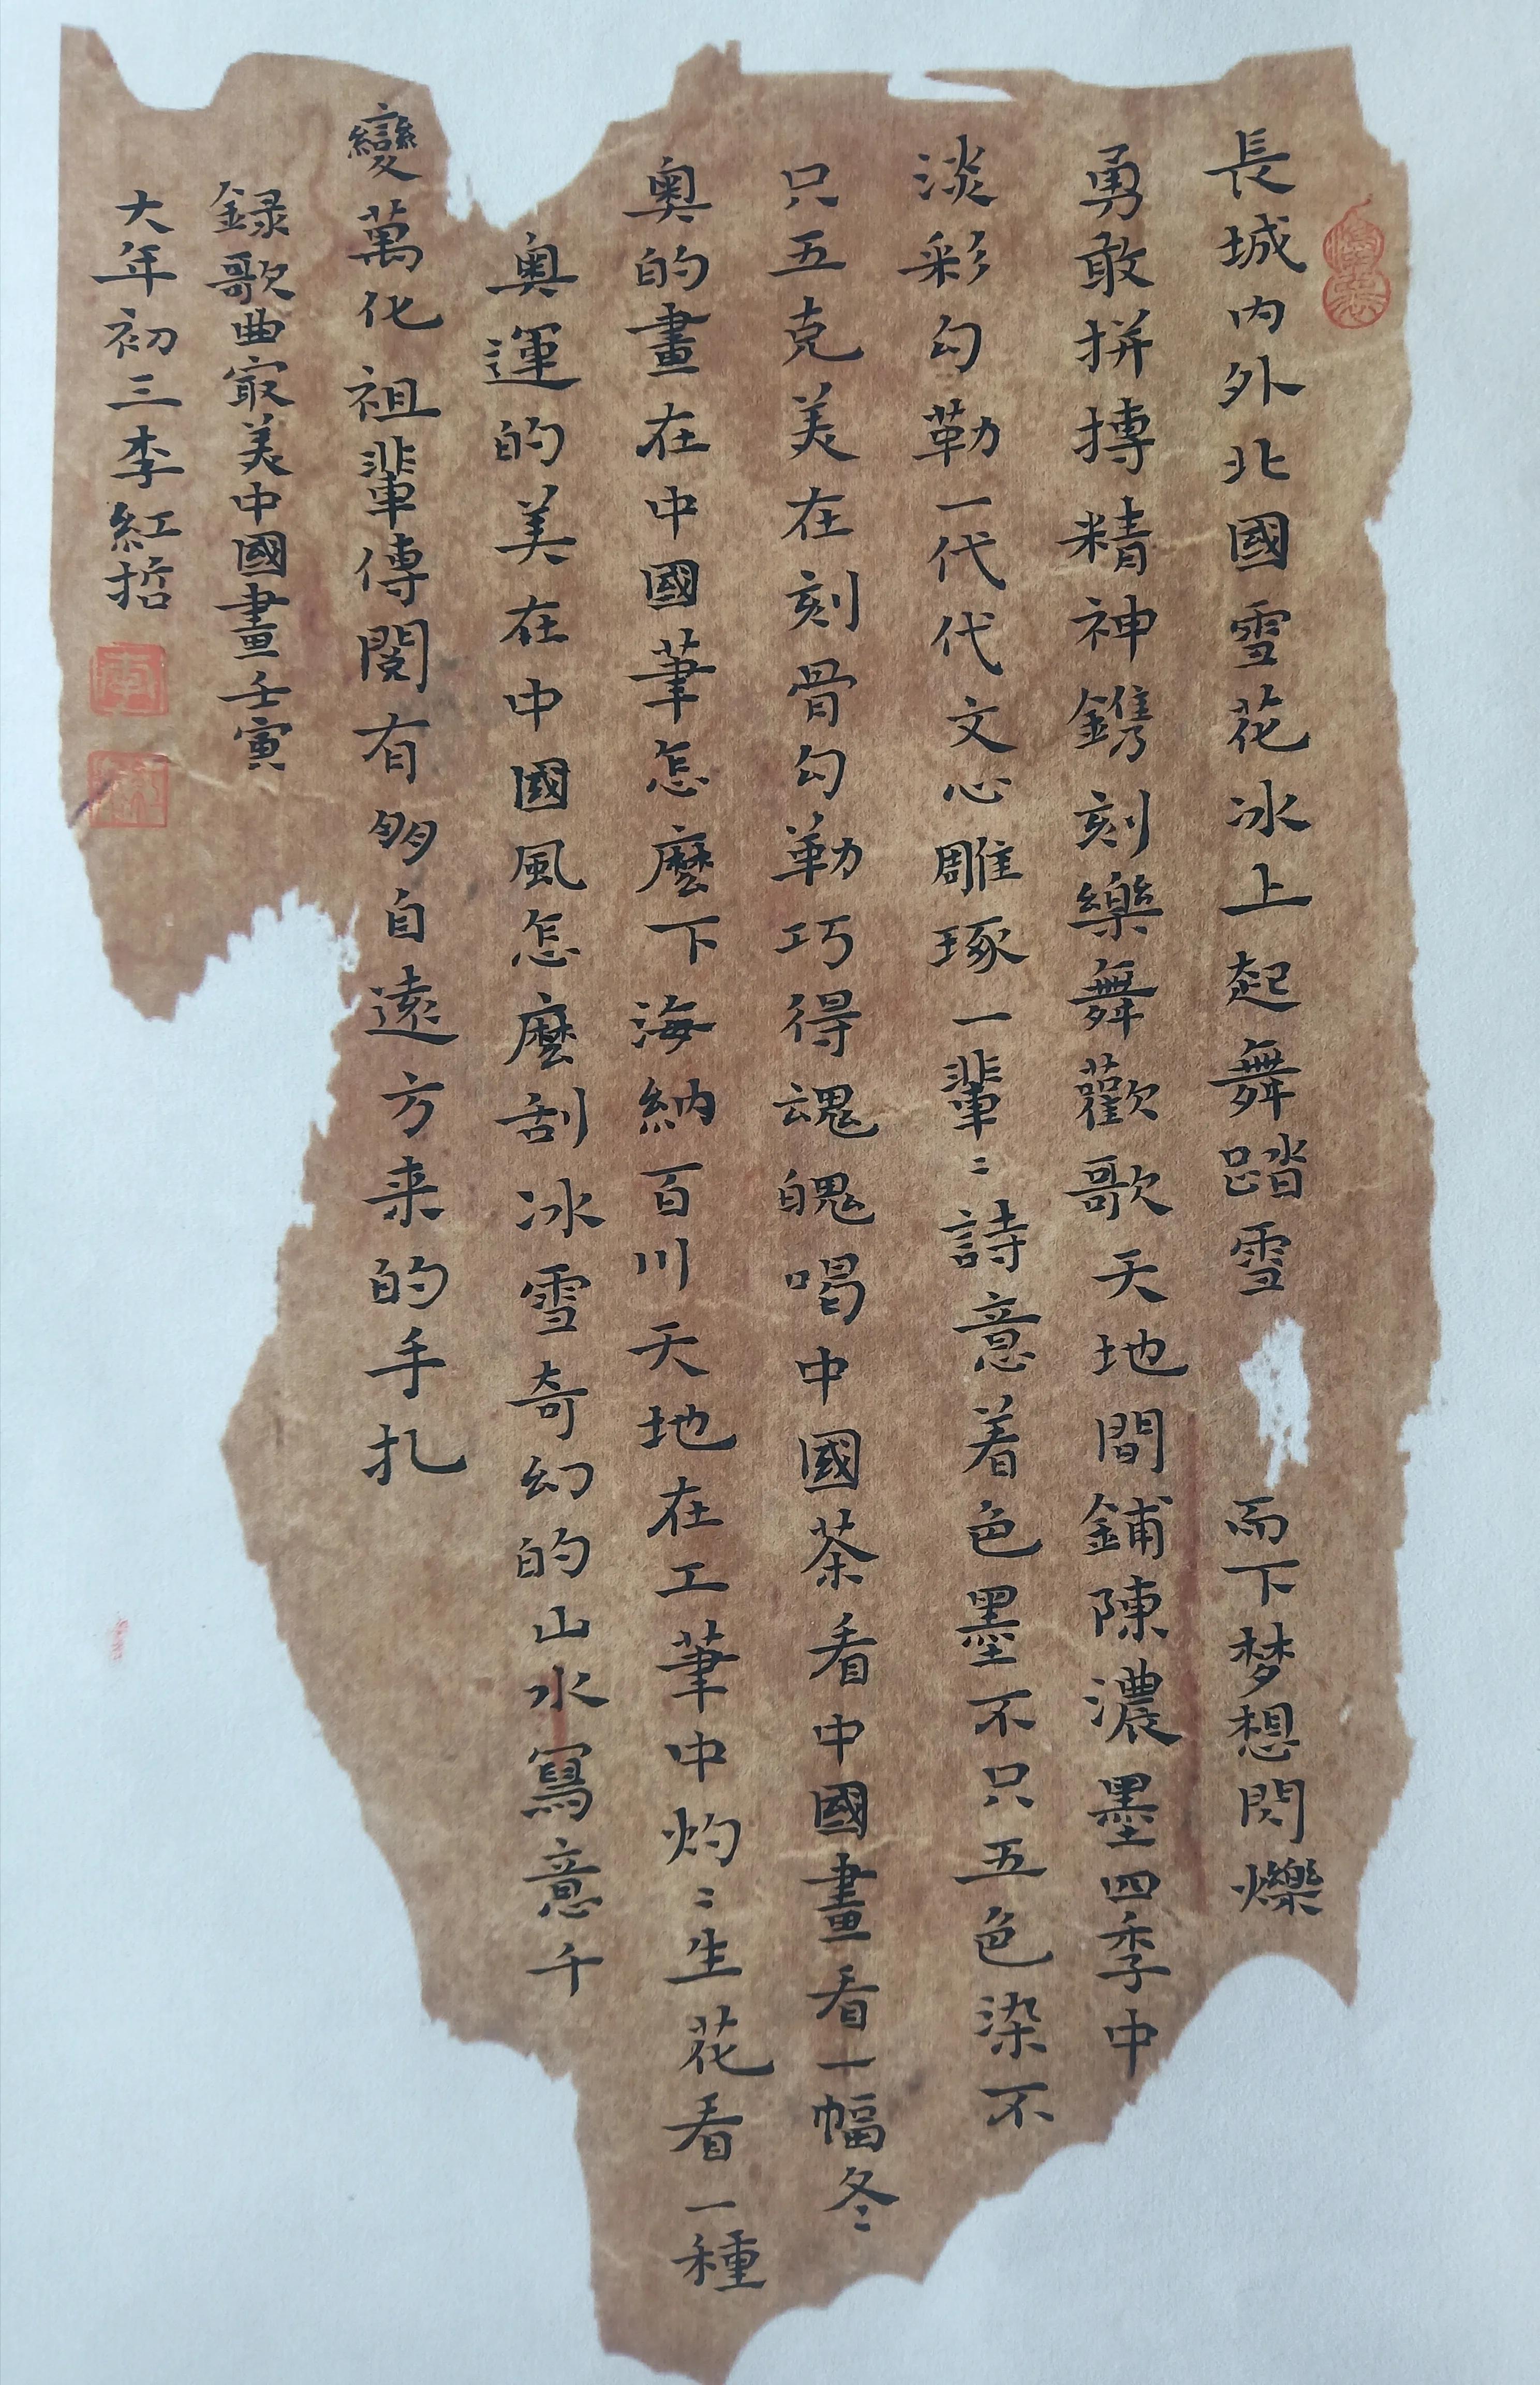 長城内外北國雪花冰上起舞踏雪而下梦想閃爍
勇敢拼搏精神鐫刻樂舞歡歌天地間鋪陳濃墨四季中
淡彩勾勒一代代文心雕琢一輩〻詩意着色墨不只五色染不
只五克美在刻骨勾勒巧得魂魄喝中國茶看中國畫看一幅冬
奥的畫在中國筆怎麼下海納百川天地在工筆中灼〻生花看一種
奥運的美在中國風怎麼刮冰雪奇幻的山水寫意千
變萬化祖輩傳閱有多少自遠方来的手扎
録歌曲冣美中國畫壬寅
大年初三李紅哲